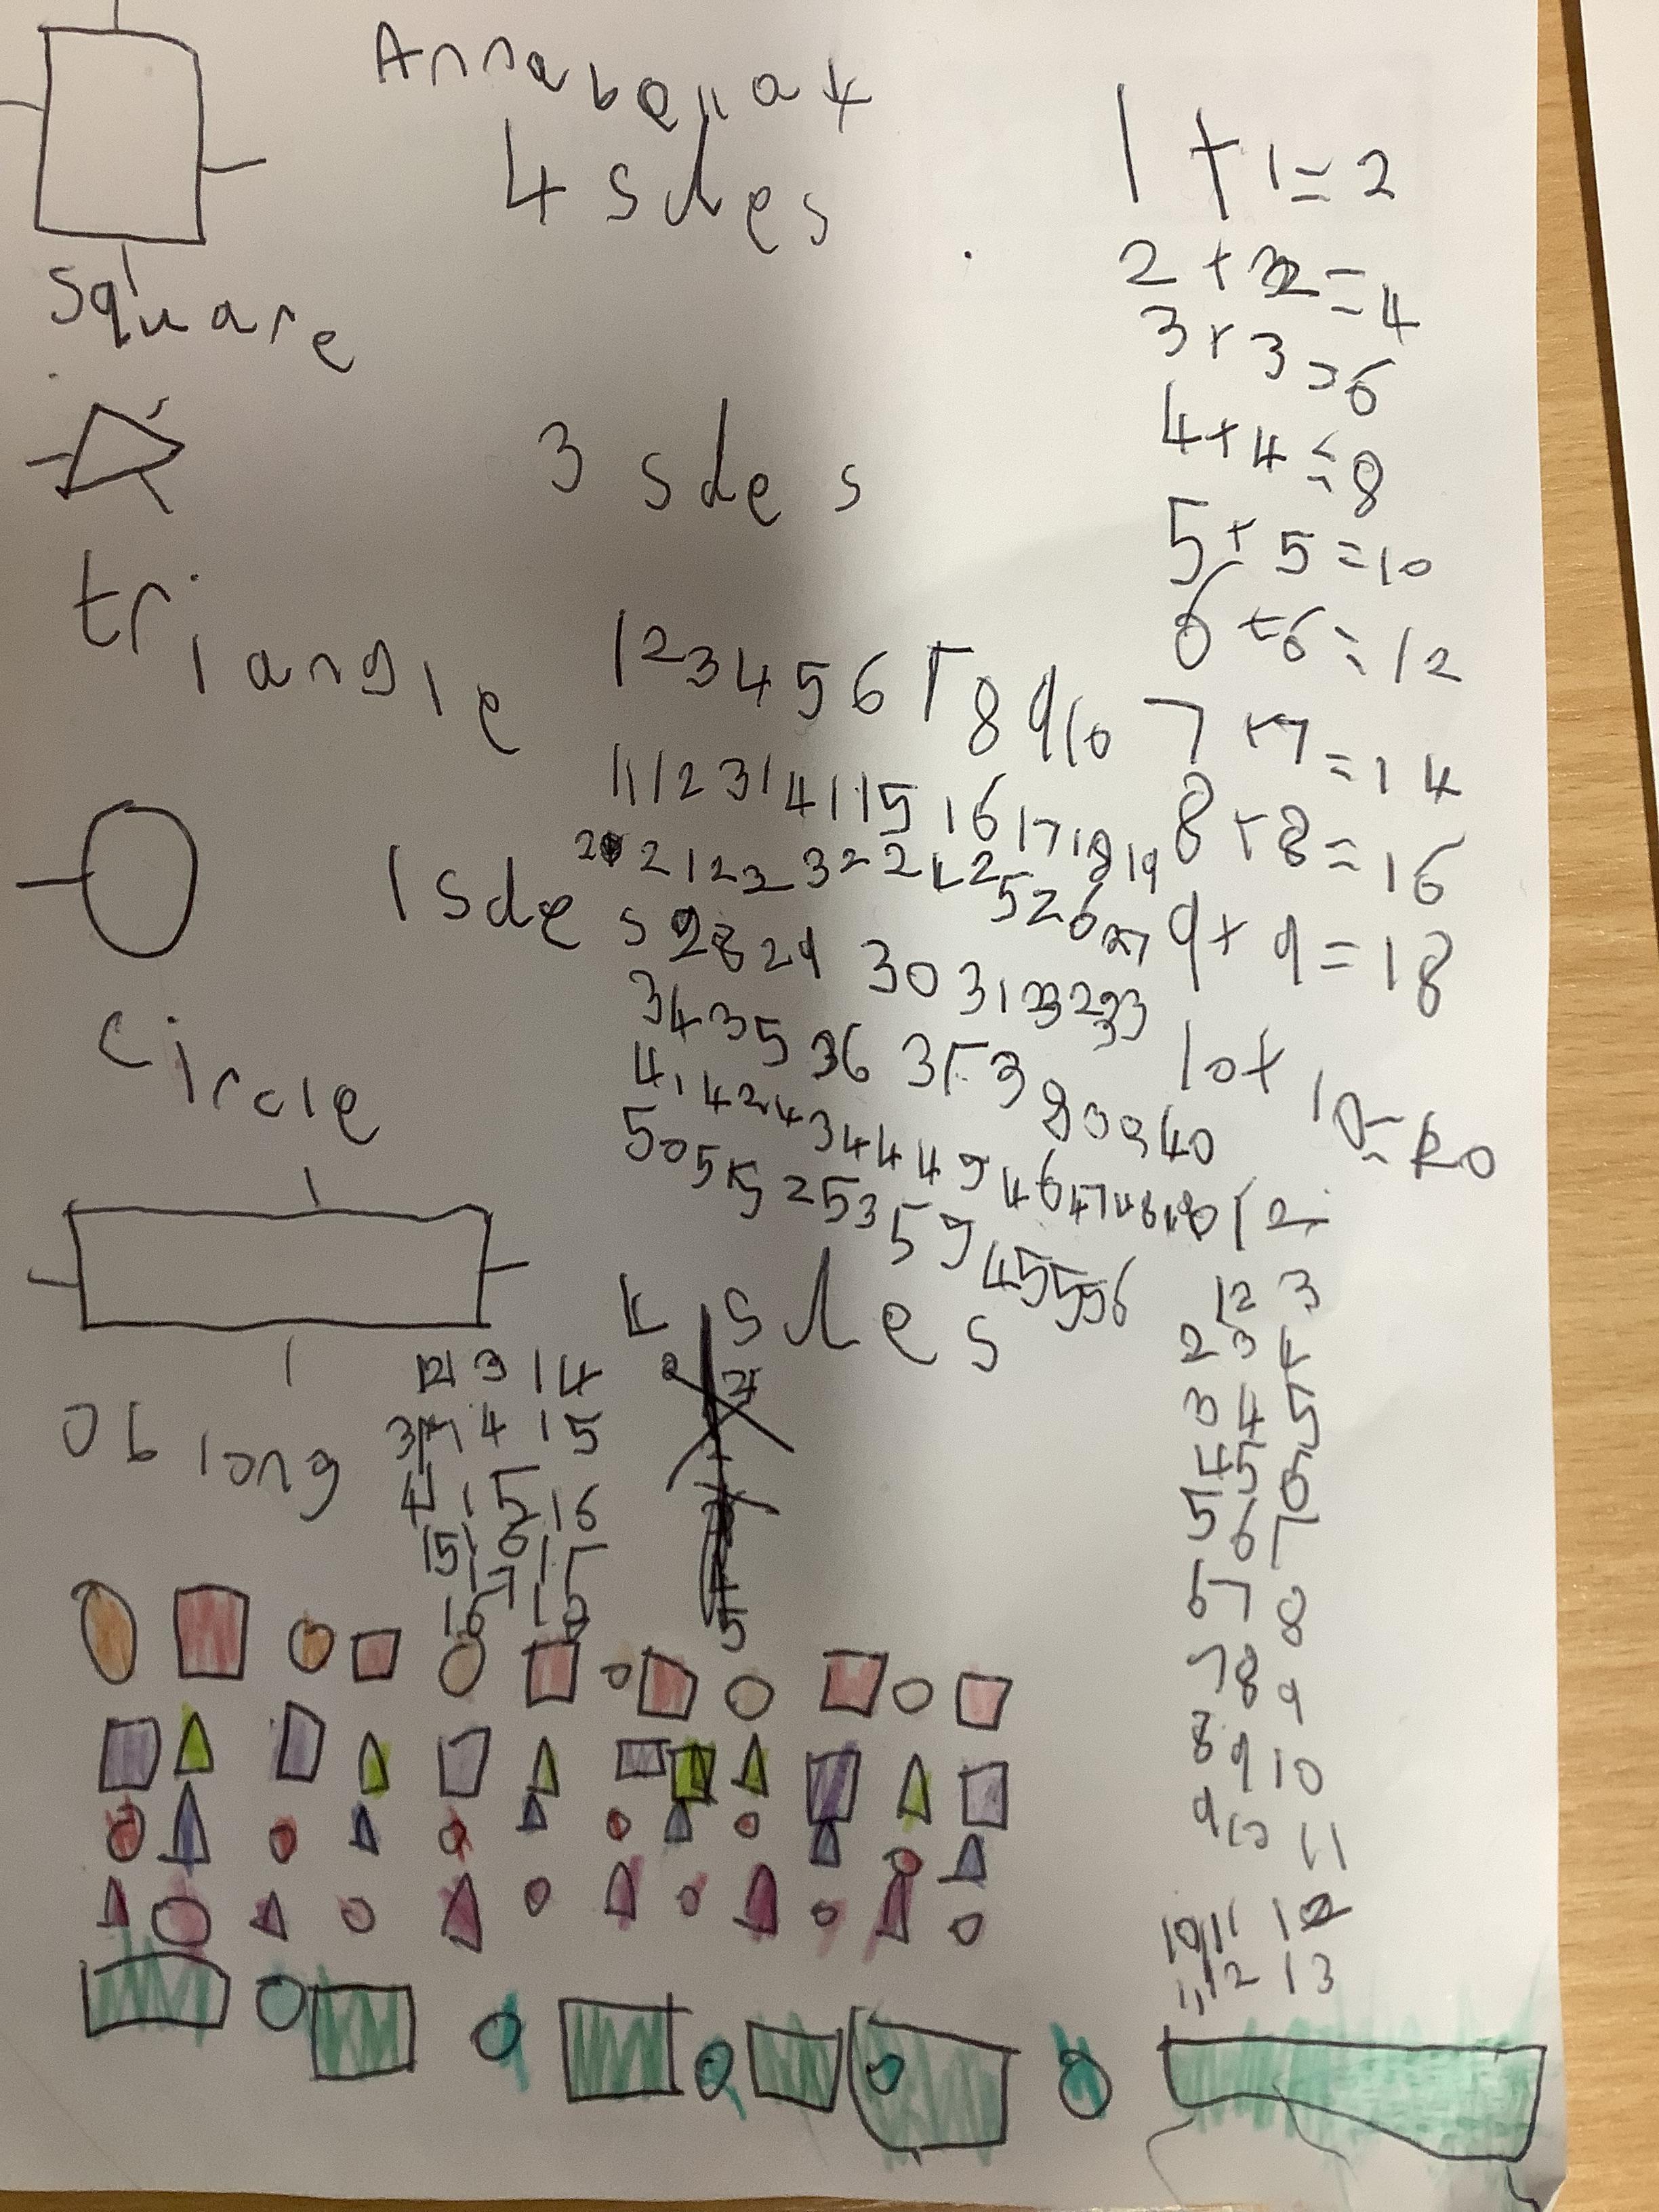 Annabellat
4 sdes
square
3 sdes
triangle
1 sdes
circle
4 sdes
oblong
1 + 1 = 2
2 + 2 = 4
3 + 3 = 6
4 + 4 = 8
5 + 5 = 10
6 + 6 = 12
7 + 7 = 14
8 + 8 = 16
9 + 9 = 18
10 + 10 = 20
1 2 3 4 5 6 7 8 9 10
11 12 3 14 115 16 17 18 19
20 21 22 32 24 25 26 27
28 29 30 31 32 33
34 35 36 37 38 39 40
41 42 43 44 45 46 47 48
50 51 52 53 5
45 55 56
1 2
12 3
2 3 4
3 4 5
4 5 6
5 6 7
6 7 8
7 8 9
8 9 10
9 10 11
10 11 12
11 12 13
3 14
4 15
15 16
16
5